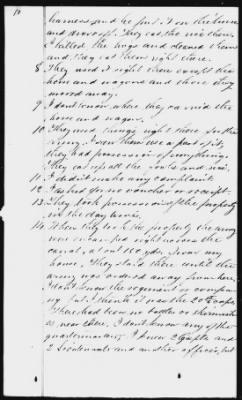 10
harness and he put it on the horse
and drove off. They eat the rice there.
I killed the hogs and cleaned them
and they eat them right there.
8. They used it right there except the
horse and wagon and those they
moved away.
9. I don't know where they carried the
horse and wagon.
10. They used things right there for the
army. I saw them use a part of it;
they had possession of everything.
They eat up all the and rice.
11. I didn't make any complaint.
12. I asked for no voucher or receipt.
13. They took possession of the property
in the day time.
14. When they took the property the army
was encamped right across the
canal, about 100 yds. from my
home. They staid there until the
army was ordered away from here.
I don't know the regiment or compa-
ny but I think it was the 20th Corps.
There had been no battle or skirmish
as near there. I don't know any of the
quartermasters. I knew 2 Capts and
2 Lieutenants and another officer, but